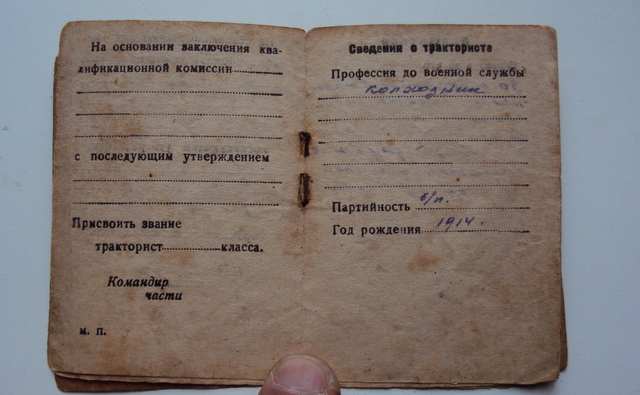 На основании заключения ква-
лификационной комиссии
с последующим утверждением
Присвоить звание
тракторист класса.
Командир
части
м. п.
Сведения о трактористе
Профессия до военной службы
колхозник
Партийность б/п.
Год рождения 1914.